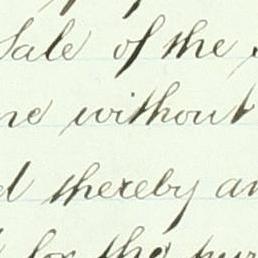 Sale of the
without
thereby
for the